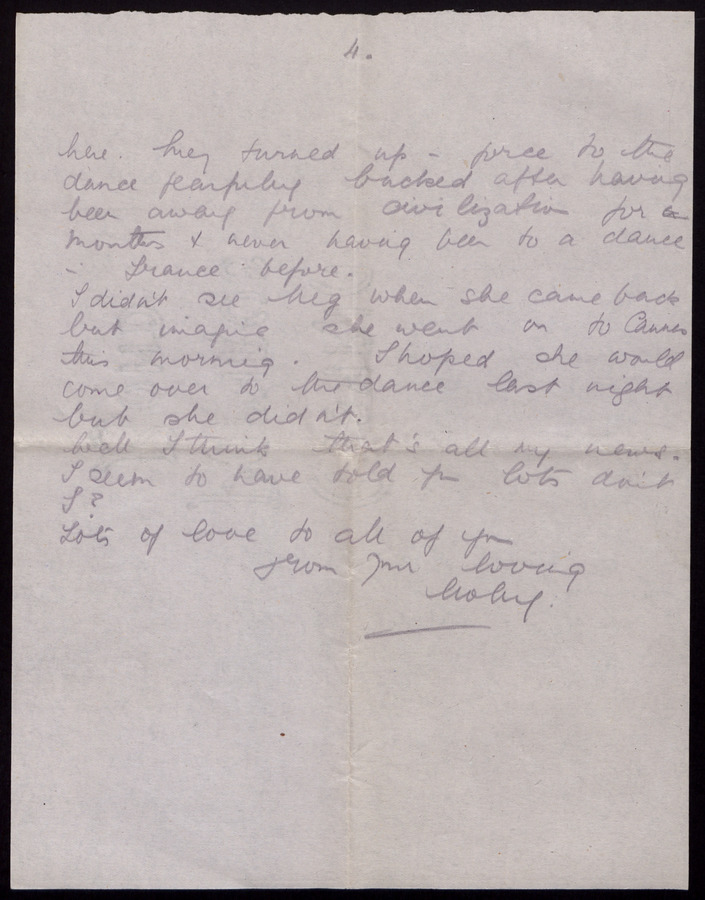 4.
here. They turned up - force to the
dance fearfully bucked after having
been away from civilization for
months & never having been to a dance
in France before.
I didn't see Meg when she came back
but imagine she went on to Cannes
this morning. I hoped she would
come over to the dance last night
but she didn't.
Well I think that's all my news.
I seem to have told you lots don't
I?
Lots of love to all of you
from your loving